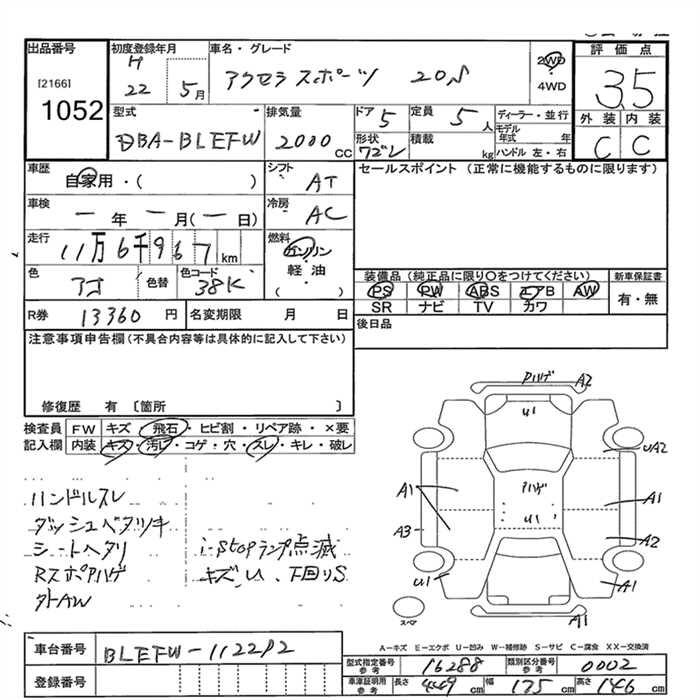 出品番号 初度登録年月 車名・グレード 評価点
[2166]
1052
H
22 5月 アクセラスポーツ 20S 2WD
4WD
3.5
外装 内装
C C
型式 排気量 ドア 定員 ディーラー・並行
DBA-BLEFW 2000 CC 5 5 人 モデル年式 年
形状 積載 ハンドル 左・右
kg
車歴 自家用・( ) シフト AT セールスポイント (正常に機能するものに限ります)
車検 一年一月(一日) 冷房 AC
走行 11万6千967km 燃料 ガソリン
軽油
( )
色 アオ 色替 色コード 38K
装備品(純正品に限り○をつけてください) 新車保証書
PS PW ABS エアB AW 有・無
SR ナビ TV カワ
R券 13360 円 名変期限 月 日 後日品
注意事項申告欄(不具合内容等は具体的に記入して下さい)
修復歴 有 〔箇所 〕
検査員 FW キズ・飛石・ヒビ割・リペア跡・×要
記入欄 内装 キズ・汚れ・コゲ・穴・スレ・キレ・破レ
ハンドルスレ
ダッシュベタツキ
シートヘタリ i-stopランプ点滅
Rスポアハゲ キズ、U、下回りS
外AW
Pハゲ A2
U1
UA2
A1 Pハゲ A1
U1
A3 A2
U1 A1
スペア A1
A-キズ E-エクボ U-凹み W-補修跡 S-サビ C-腐食 XX-交換済
車台番号 BLEFW-112292
登録番号
型式指定番号 参考 16288 類別区分番号 参考 0002
車庫証明用 参考 長さ 449 cm 幅 175 cm 高さ 146 cm